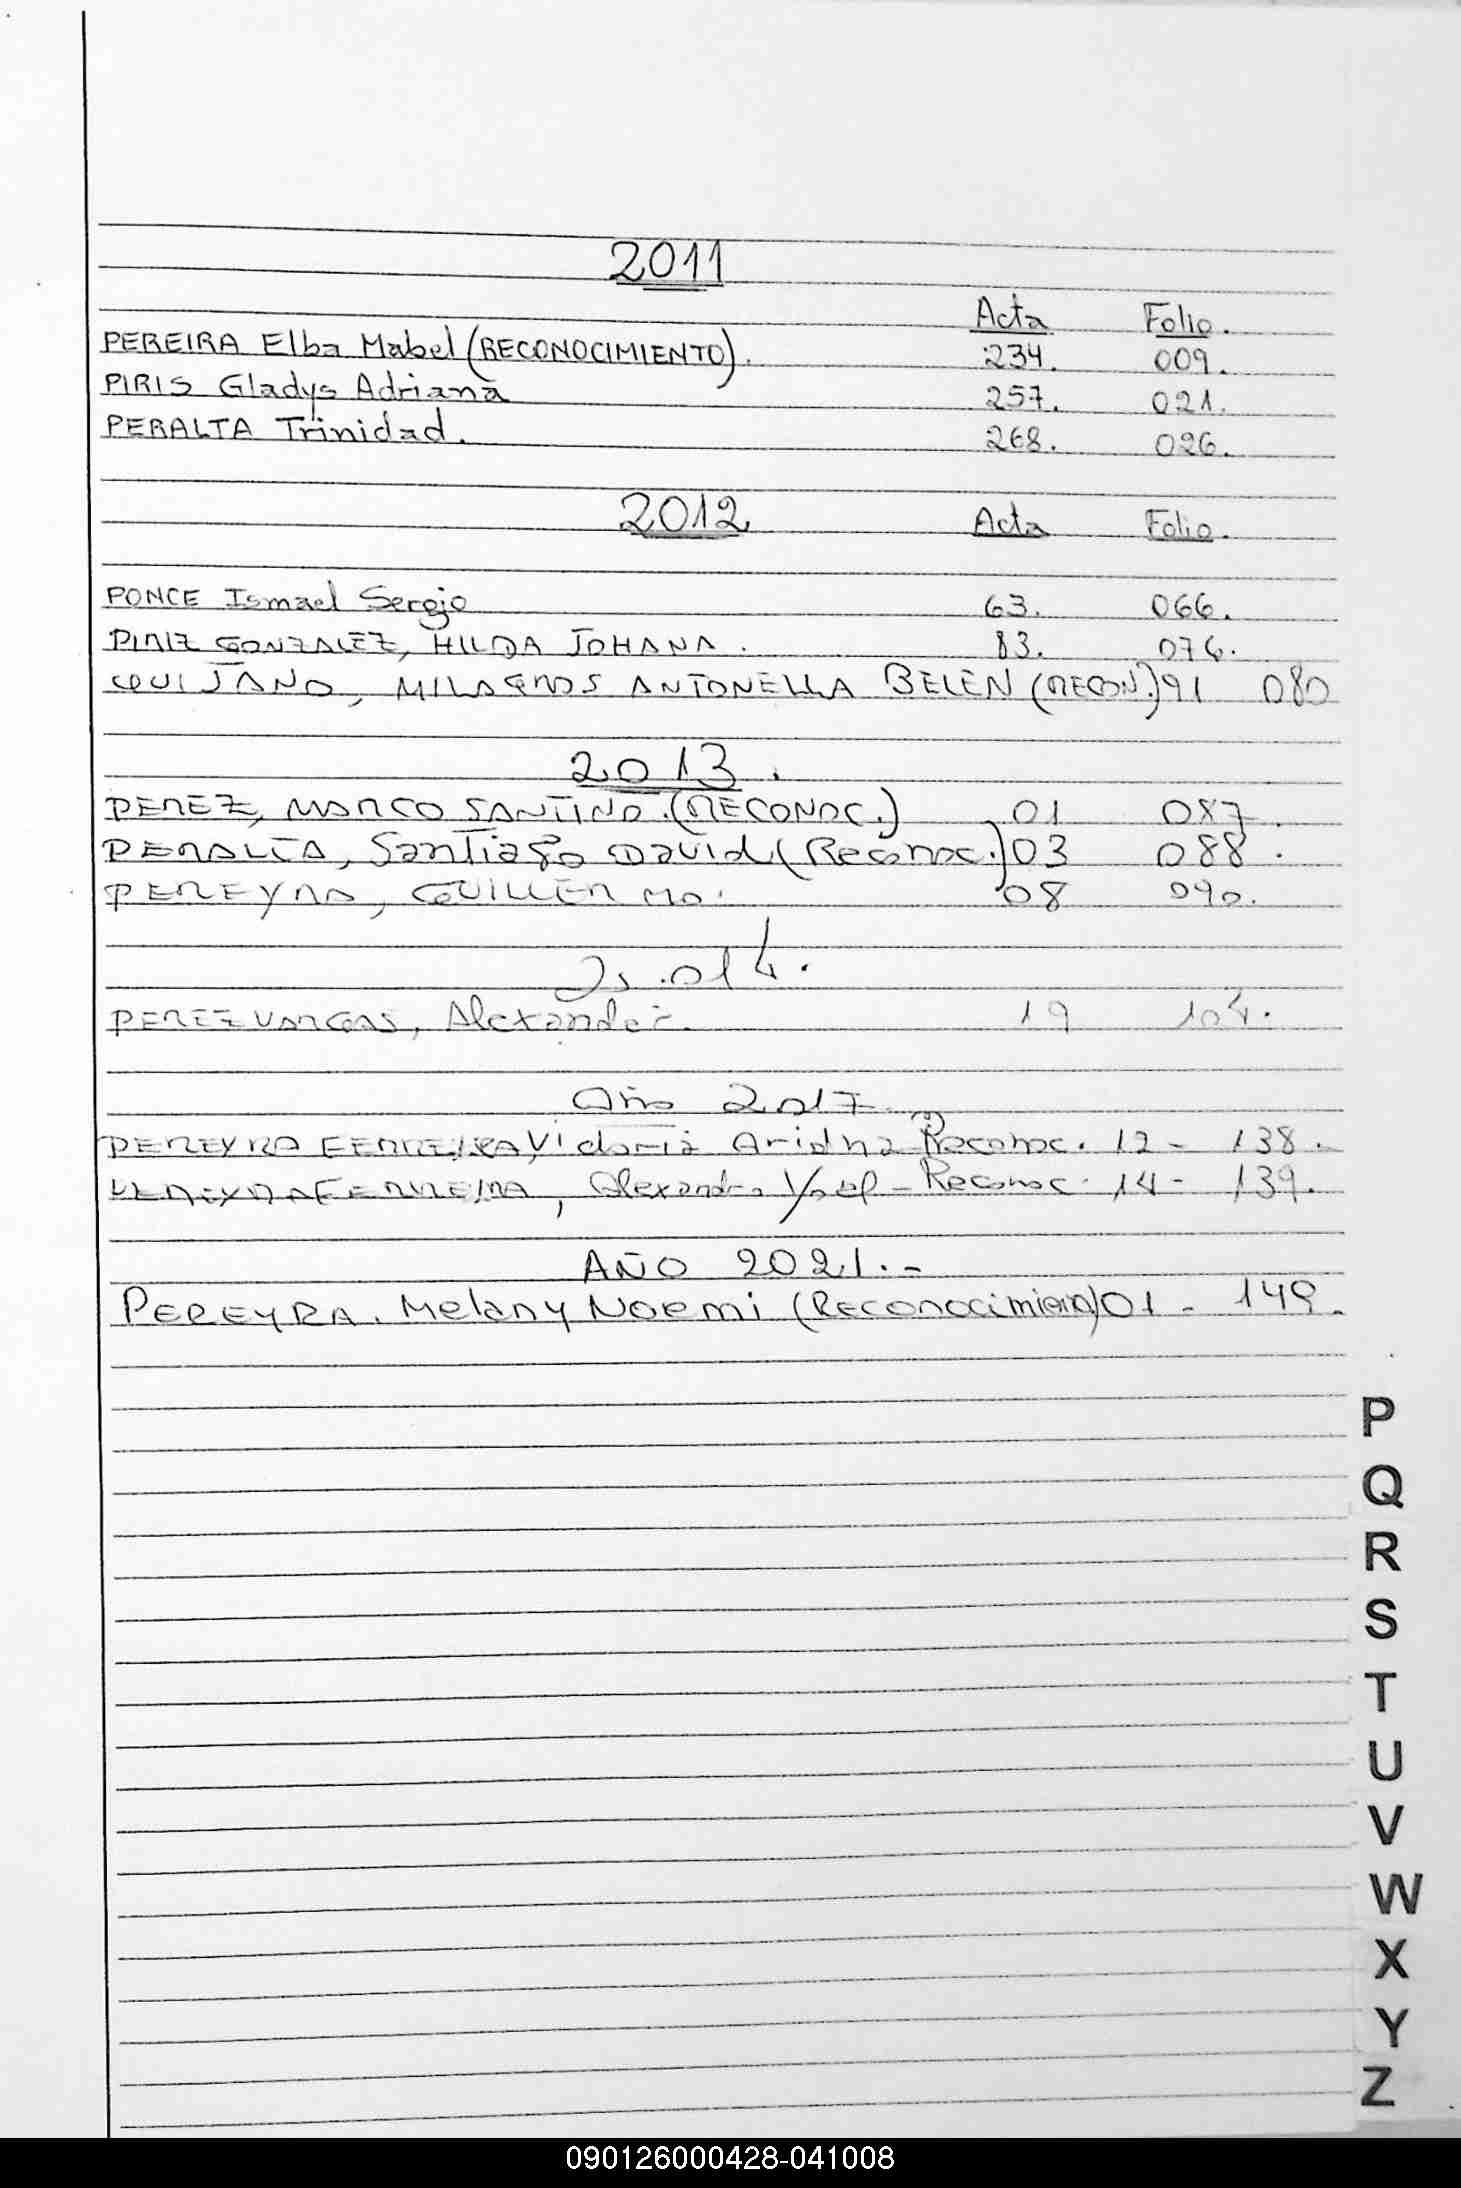 2011
Acta Folio.
PEREIRA Elba Mabel (RECONOCIMIENTO). 234. 009.
PIRIS Gladys Adriana 257. 021.
PERALTA Trinidad. 268. 026.
2012 Acta Folio.
PONCE Ismael Sergio 63. 066.
PIRIZ GONZALEZ, HILDA JOHANA. 83. 076.
QUIJANO, MILAGROS ANTONELLA BELEN (RECON.) 91 080
2013.
PEREZ, MARCO SANTINO. (RECONOC.) 01 087.
PERALTA, Santiago David (Reconoc.) 03 088.
PEREYRA, GUILLERMO. 08 090.
2.014.
PEREZ VARGAS, Alexander. 19 104.
Año 2017
PEREYRA FERREIRA, Victoria Ariana Reconoc. 12 - 138.
PEREYRA FERREIRA, Alexandro - Reconoc. 14 - 139.
AÑO 2021.-
PEREYRA. Melany Noemi (Reconocimiento) 01 - 149.
P
Q
R
S
T
U
V
W
X
Y
Z
090126000428-041008